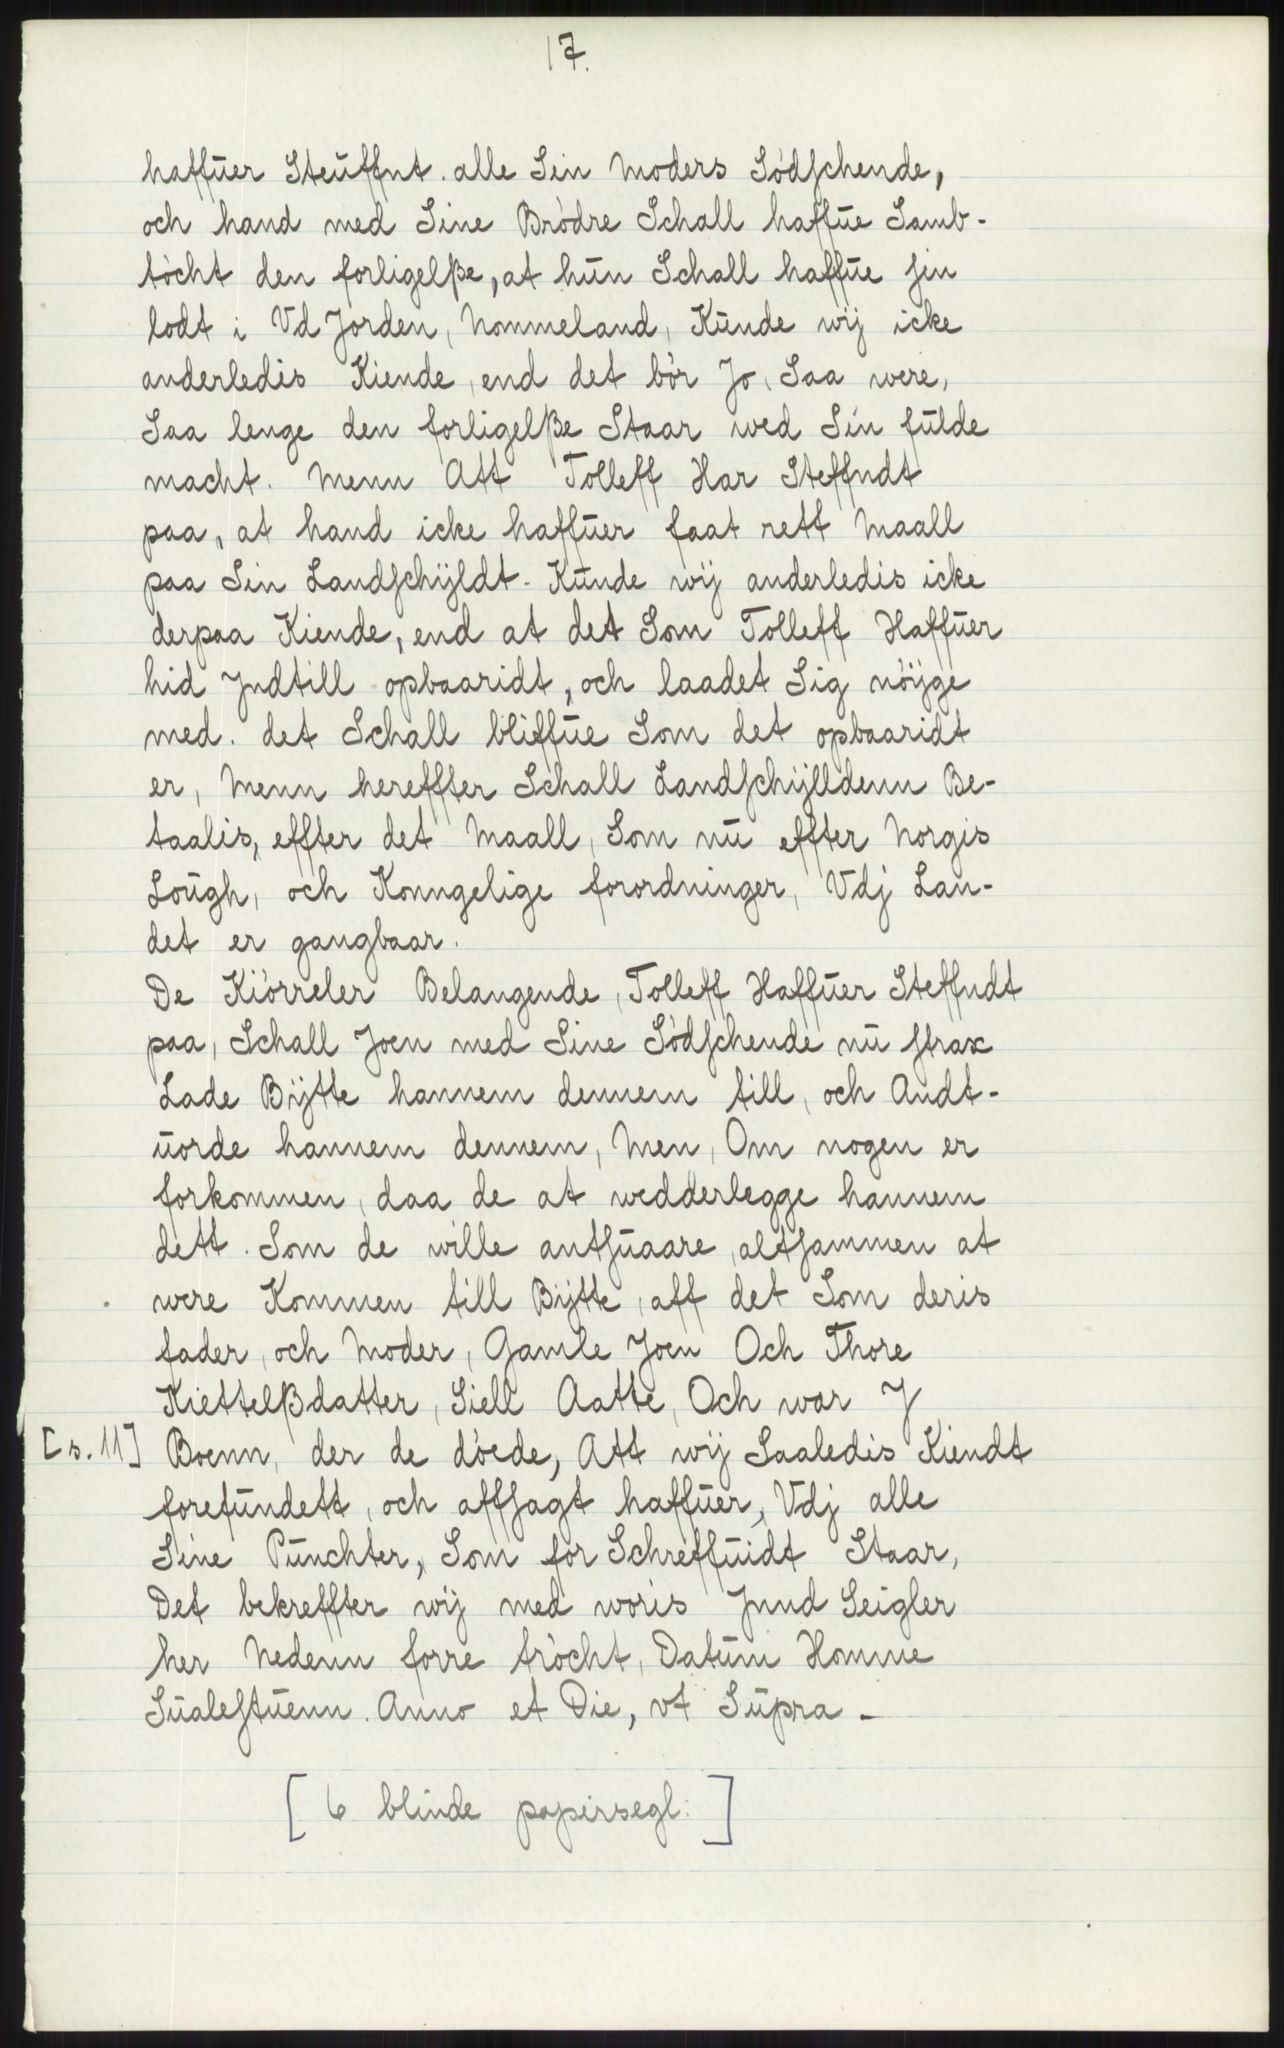 17.
haffuer Steuffnt. alle Sin Moders Södschende,
och hand med Sine Brödre Schall haffue Samb-
töcht den forligelße, at hun Schall haffue sin
lodt i Vd Jorden, Nommeland, Kunde wij icke
anderledis Kiende, end det bör Jo, Saa were,
Saa lenge den forligelße Staar wed Sin fulde
macht. Menn Att Tolleff Har Steffndt
paa, at hand icke haffuer faat rett Maall
paa Sin Landschyldt. Kunde wij anderledis icke
derpaa Kiende, end at det Som Tolleff Haffuer
hid Jndtill opbaaridt, och laadet Sig nöyge
med. det Schall bliffue Som det opbaaridt
er, Menn hereffter Schall Landschylldenn Be-
taalis, effter det Maall, Som nu effter Norgis
Lough, och Konngelige forordninger, Vdj Lan-
det er gangbaar.
De Kiörreler Belangende, Tolleff Haffuer Steffndt
paa, Schall Joen med Sine Södschende nu strax
Lade Bytte hannem dennem till, och Andt-
uorde hannem dennem, Men, Om nogen er
forkommen, daa de at wedderlegge hannem
dett. Som de wille antsuaare, altsammen at
were Kommen till Bytte, aff det Som deris
fader, och Moder, Gamle Joen Och Thore
Kiettelßdatter, Siell Aatte, Och war J
[s. 11] Boenn, der de döede, Att wij Saaledis Kiendt
forefundett, och affsagt haffuer, Vdj alle
Sine Punchter, Som for Schreffuidt Staar,
Det bekreffter wij med woris Jnnd Seigler
her Nedenn forre tröcht, Datum Homme
Sualestuenn. Anno et Die, vt Supra -
[6 blinde papirsegl:]